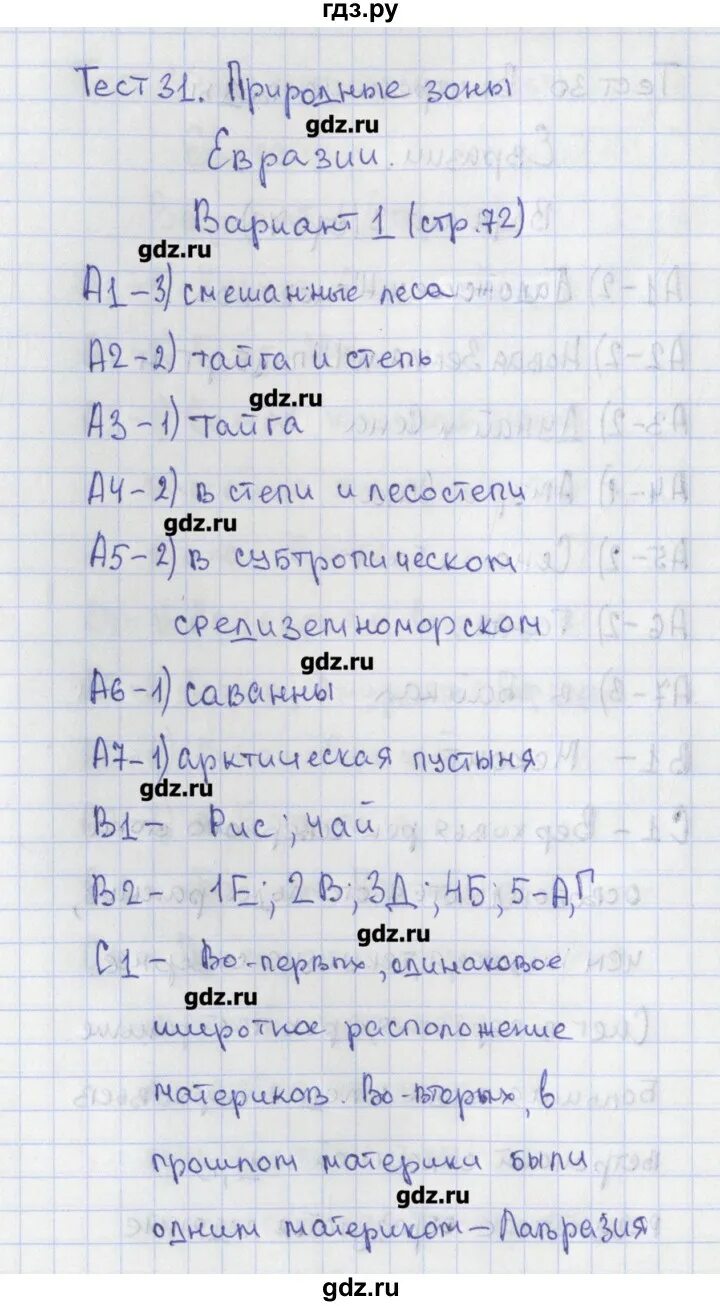 гдз.ру
Тест 31. Природные зоны
gdz.ru
Евразии.
Вариант 1 (стр.72)
gdz.ru
А1-3) смешанные леса
А2-2) тайга и степь
gdz.ru
А3-1) тайга
А4-2) в степи и лесостепи
gdz.ru
А5-2) в субтропическом
средиземноморском
gdz.ru
А6-1) саванны
А7-1) арктическая пустыня
gdz.ru
В1- Рис; чай
В2- 1Е; 2В; 3Д; 4Б; 5-А,Г
gdz.ru
С1- Во-первых, одинаковое
gdz.ru
широтное расположение
материков. Во-вторых, в
прошлом материки были
gdz.ru
одним материком-Лавразия
gdz.ru